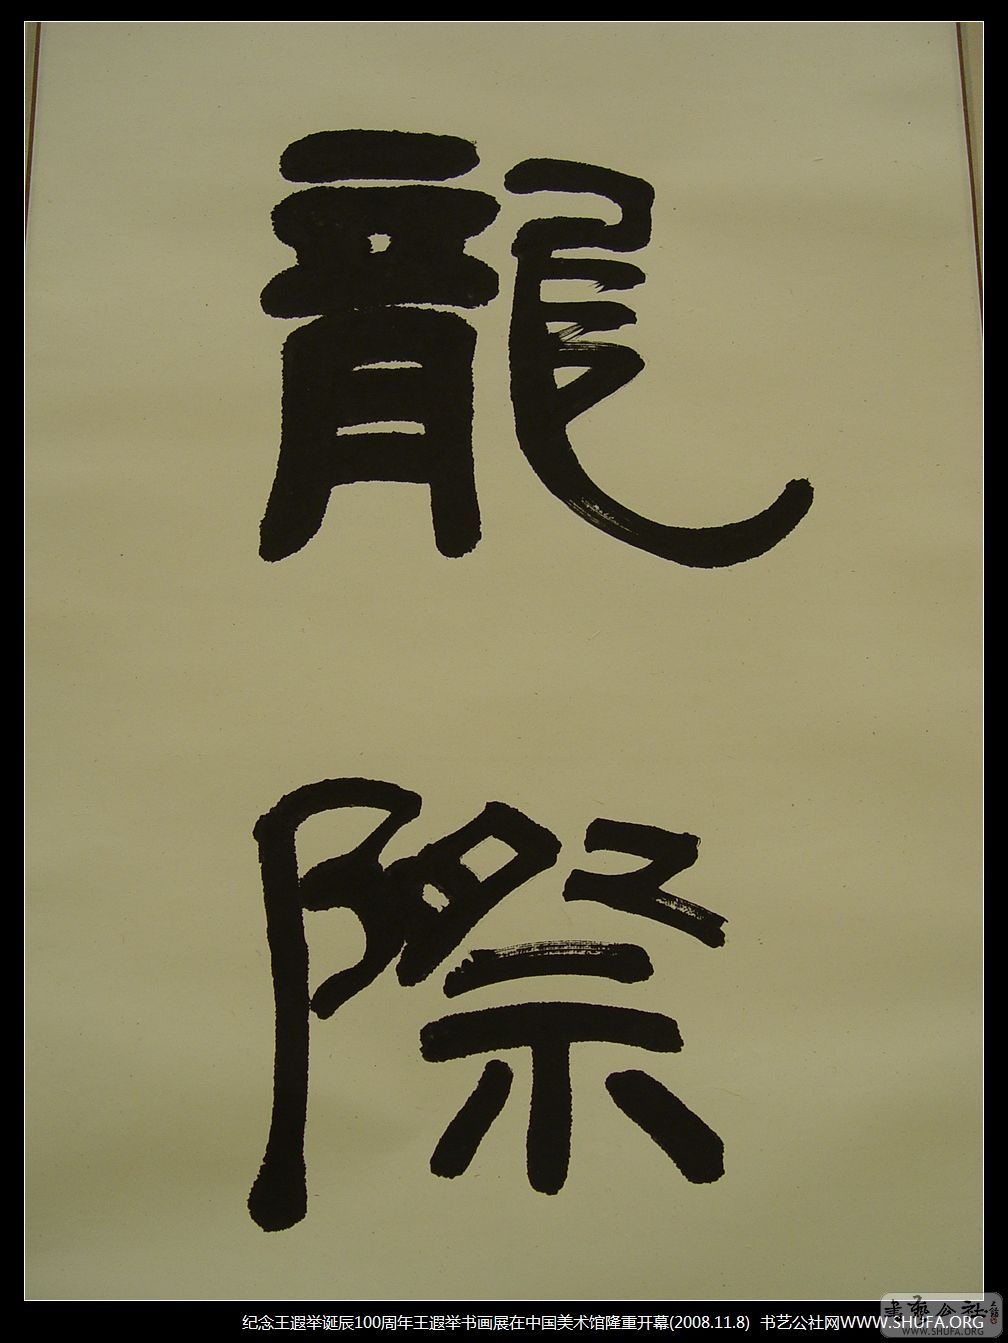 龍
際
書藝公社
WWW.SHUFA.ORG
纪念王遐举诞辰100周年王遐举书画展在中国美术馆隆重开幕(2008.11.8) 书艺公社网WWW.SHUFA.ORG